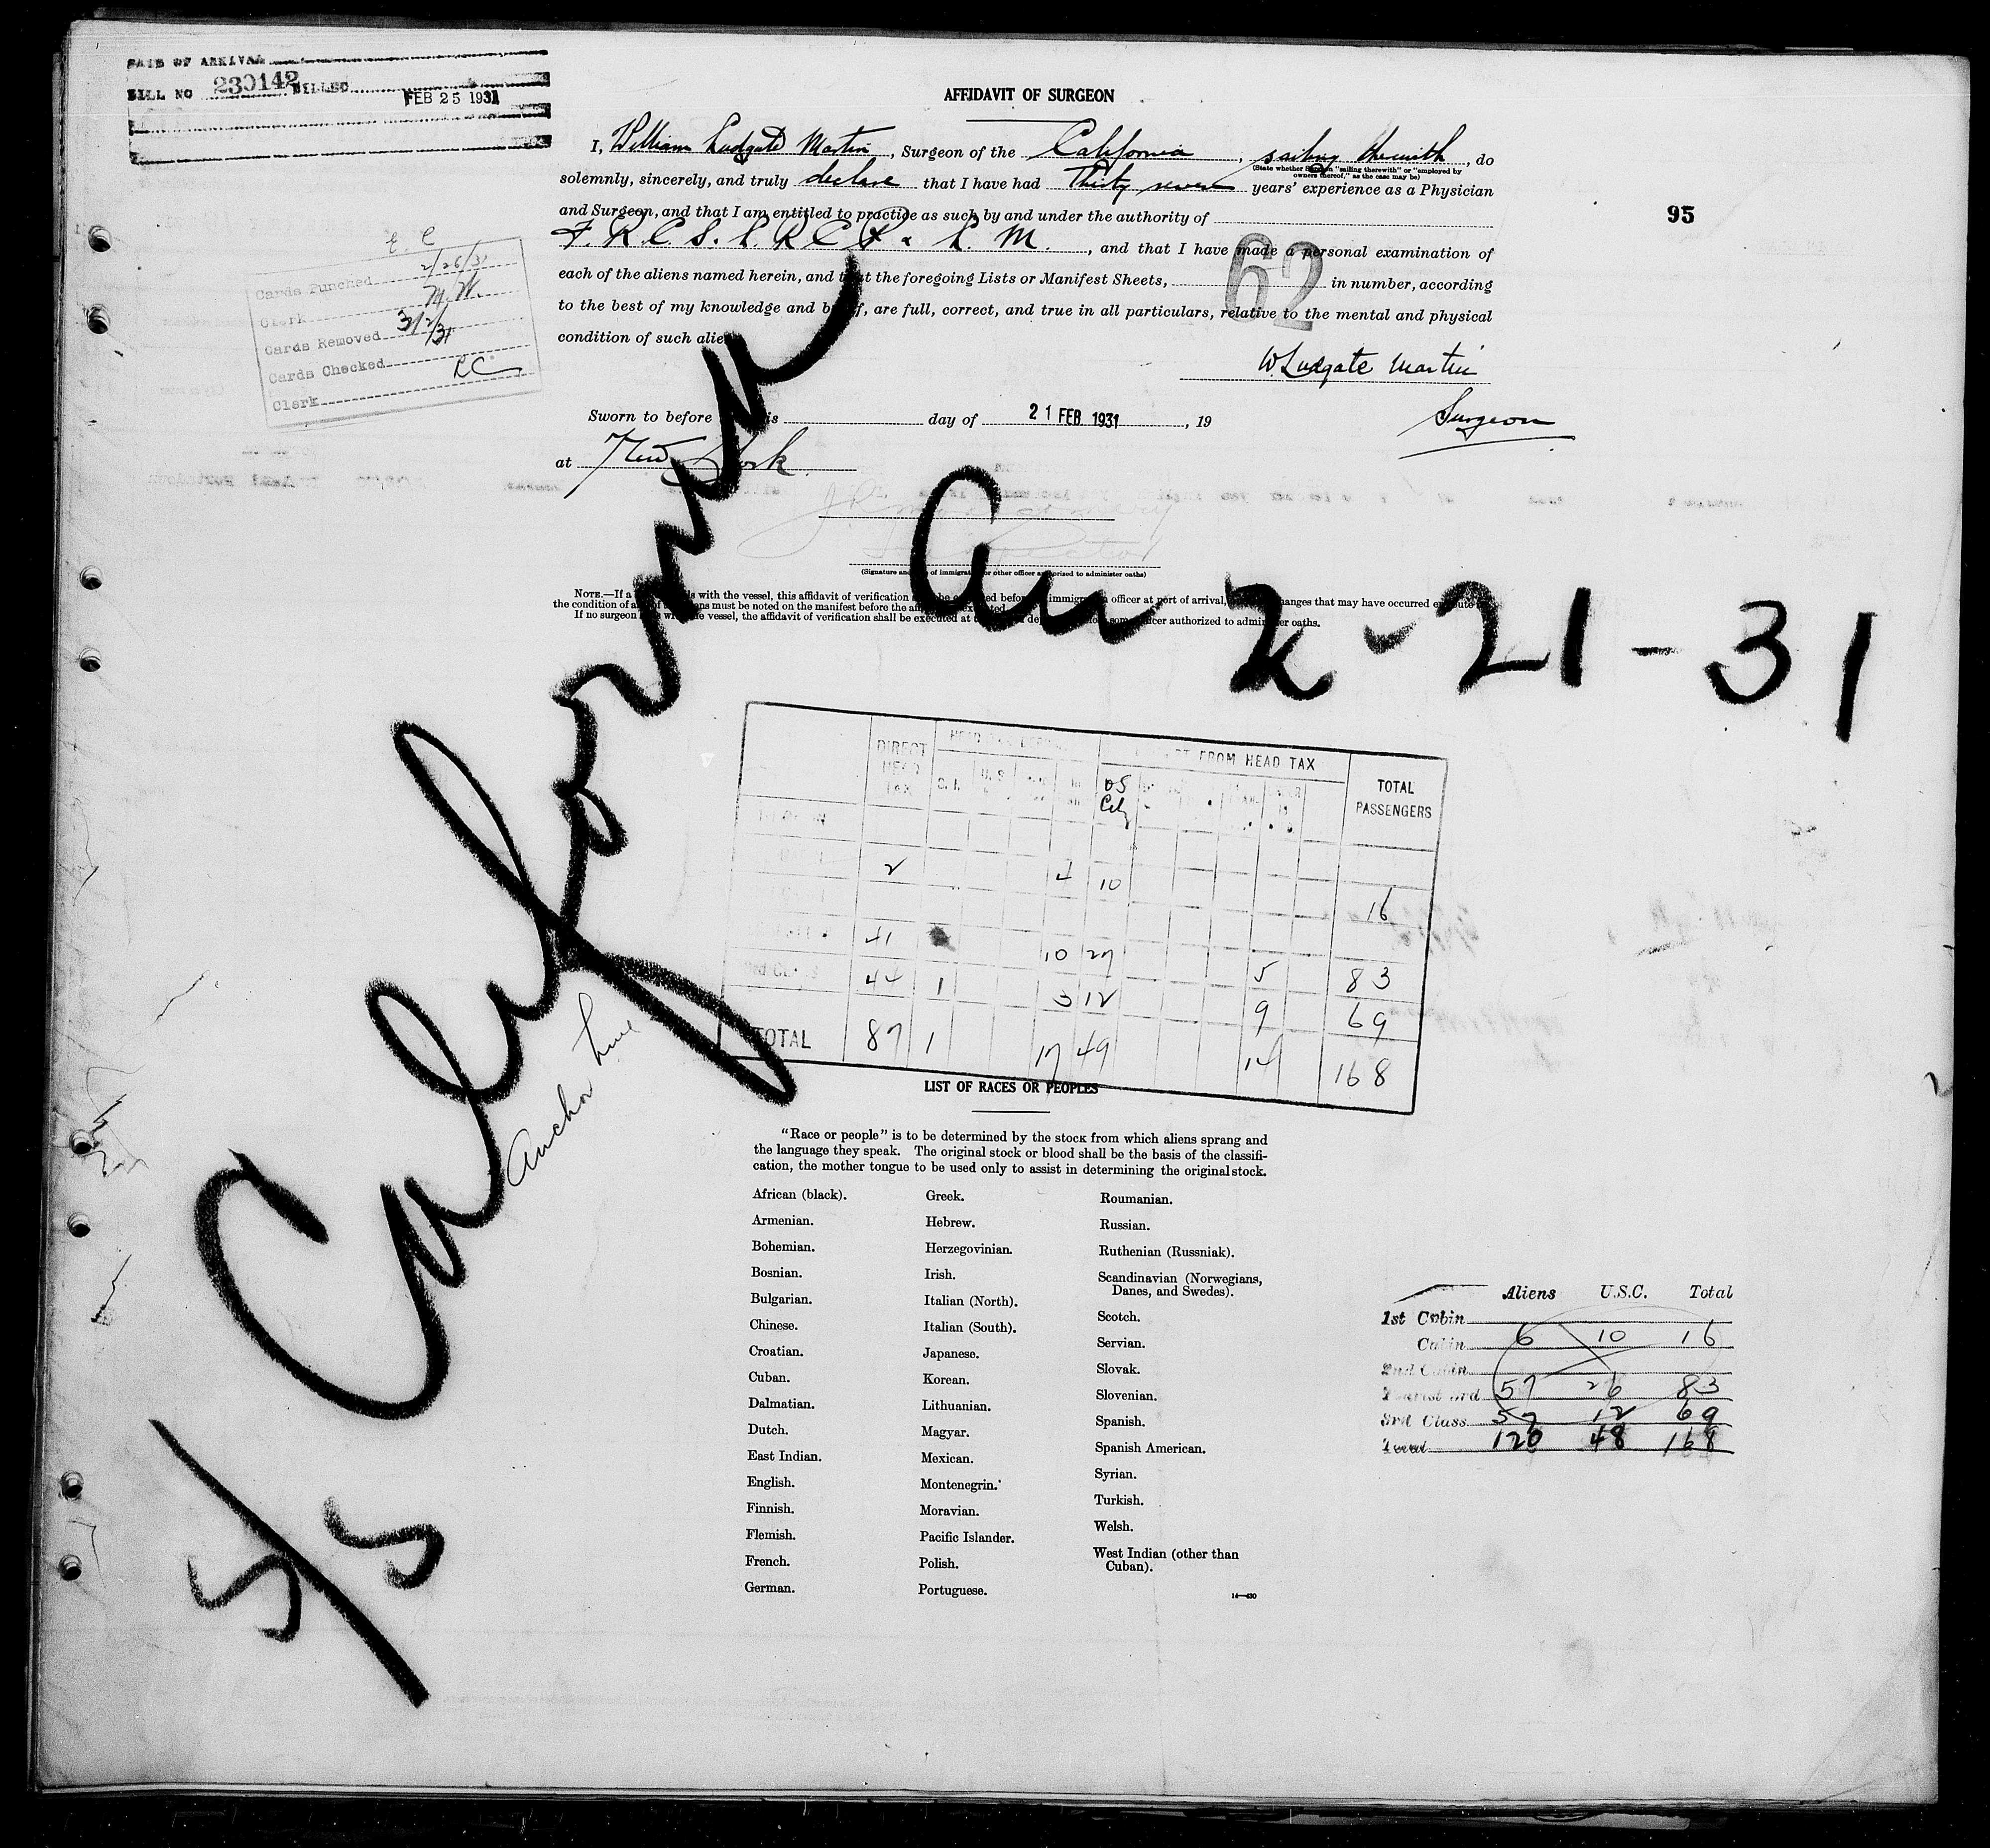 DATE OF ARRIVAL
BILL NO 230142 BILLED FEB 25 1931
AFFIDAVIT OF SURGEON
I, William Ludgate Martin, Surgeon of the California, sailing therewith, do
(State whether Surgeon "sailing therewith" or "employed by
owners thereof," as the case may be)
solemnly, sincerely, and truly declare that I have had Thirty seven years' experience as a Physician
and Surgeon, and that I am entitled to practice as such by and under the authority of
95
F.R.C.S. L.R.C.P. & L.M., and that I have made a personal examination of
each of the aliens named herein, and that the foregoing Lists or Manifest Sheets, in number, according
62
to the best of my knowledge and belief, are full, correct, and true in all particulars, relative to the mental and physical
condition of such aliens
E. C
Cards Punched 2/26/31
Clerk M.W.
Cards Removed 3/2/31
Cards Checked
Clerk LC
W. Ludgate Martin
Surgeon
Sworn to before is day of 21 FEB 1931, 19
at New York
J.R. Montgomery
Inspector
(Signature and of immigrat or other officer authorized to administer oaths)
NOTE.—If a s with the vessel, this affidavit of verification be ed before immigration officer at port of arrival, changes that may have occurred en route
the condition of a ns must be noted on the manifest before the aff executed
If no surgeon the vessel, the affidavit of verification shall be executed at some officer authorized to administer oaths.
S/S California
Anchor Line
Arr 2-21-31
DIRECT HEAD TAX FROM HEAD TAX TOTAL PASSENGERS
C. I. U.S US City
2 4 10 16
41 10 27 5 83
3rd Class 44 1 3 12 9 69
TOTAL 87 1 17 49 14 168
LIST OF RACES OR PEOPLES
"Race or people" is to be determined by the stock from which aliens sprang and
the language they speak. The original stock or blood shall be the basis of the classifi-
cation, the mother tongue to be used only to assist in determining the original stock.
African (black).
Armenian.
Bohemian.
Bosnian.
Bulgarian.
Chinese.
Croatian.
Cuban.
Dalmatian.
Dutch.
East Indian.
English.
Finnish.
Flemish.
French.
German.
Greek.
Hebrew.
Herzegovinian.
Irish.
Italian (North).
Italian (South).
Japanese.
Korean.
Lithuanian.
Magyar.
Mexican.
Montenegrin.
Moravian.
Pacific Islander.
Polish.
Portuguese.
Roumanian.
Russian.
Ruthenian (Russniak).
Scandinavian (Norwegians,
Danes, and Swedes).
Scotch.
Servian.
Slovak.
Slovenian.
Spanish.
Spanish American.
Syrian.
Turkish.
Welsh.
West Indian (other than
Cuban).
14—430
Aliens U.S.C. Total
1st Cabin
Cabin 6 10 16
2nd Cabin
Tourist 3rd 57 26 83
3rd Class 57 12 69
Total 120 48 168